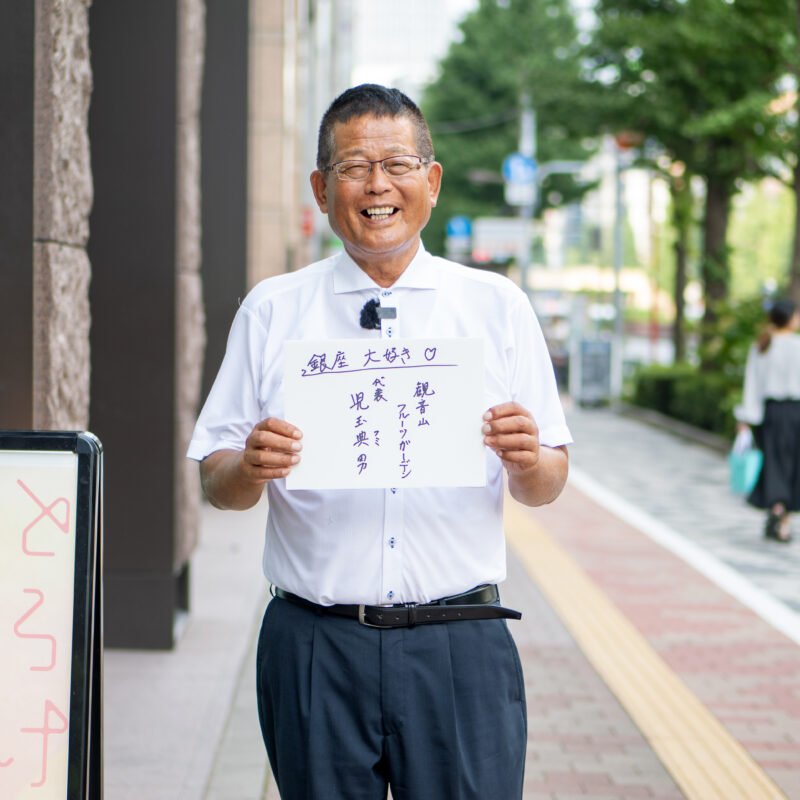 銀座 大好き♡
観音山
フルーツガーデン
代表
児玉典男